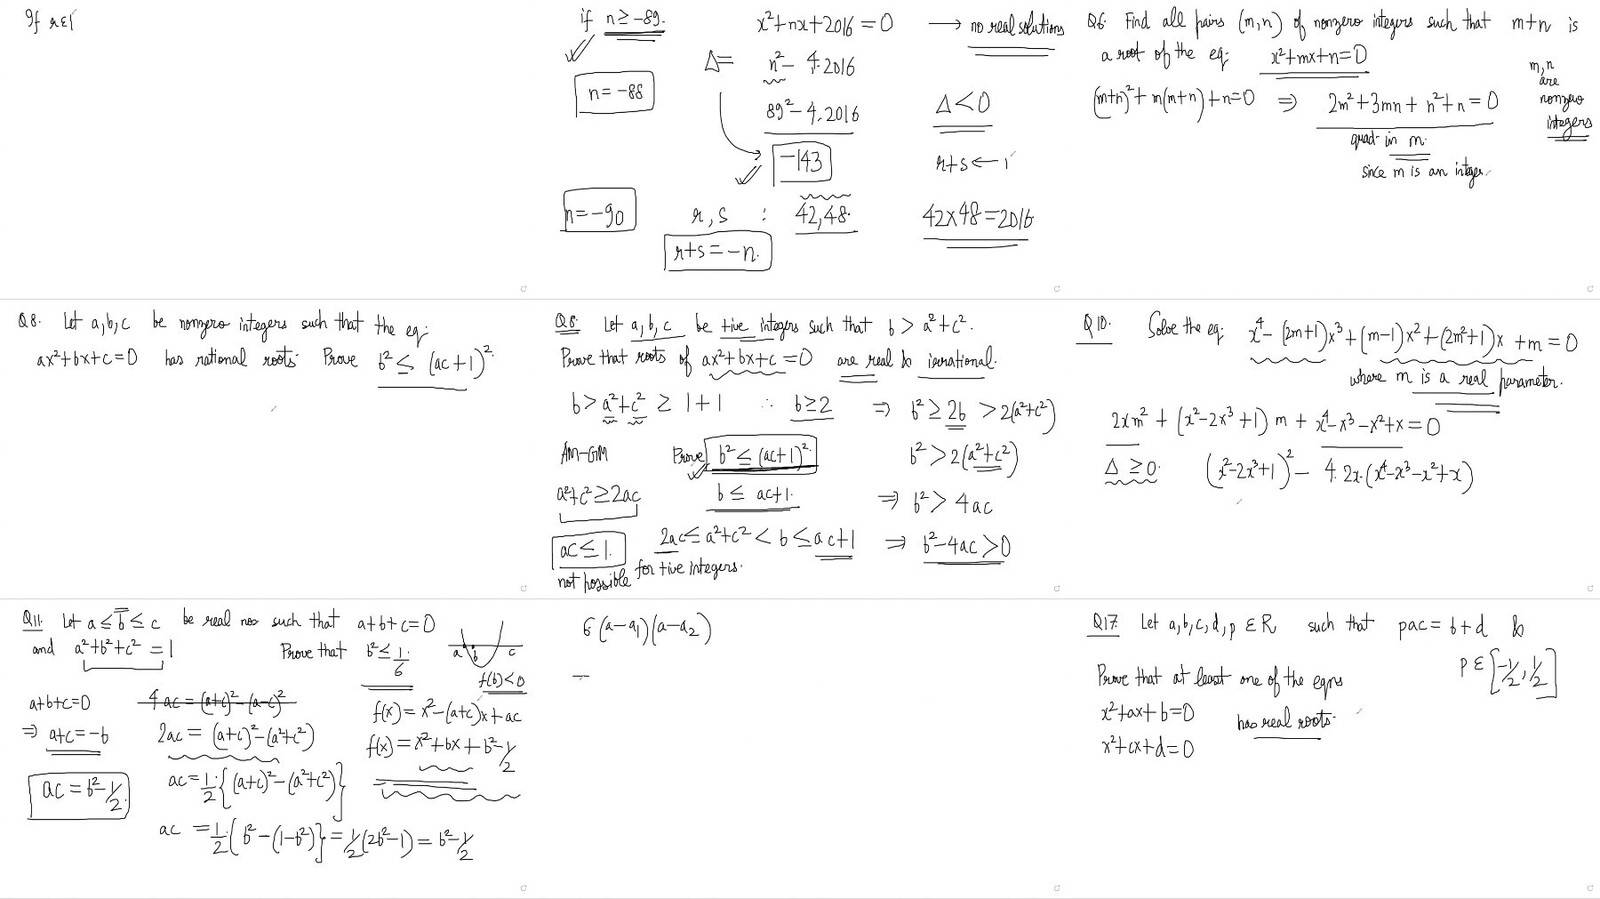 if n ≥ -89.
x²+nx+2016=0 → no real solutions
Δ= n² - 4.2016
n=-88
89² - 4.2016 Δ<0
-143 r+s ←
n=-90 r, s : 42,48. 42x48=2016
r+s=-n.
Q6. Find all pairs (m,n) of nonzero integers such that m+n is
a root of the eq: x²+mx+n=0
m,n are nonzero integers
(m+n)²+m(m+n)+n=0 ⇒ 2m²+3mn+n²+n=0
quad in m.
since m is an integer.
Q8. Let a,b,c be nonzero integers such that the eq:
ax²+bx+c=0 has rational roots. Prove b² ≤ (ac+1)².
Q8: Let a,b,c be +ive integers such that b > a²+c².
Prove that roots of ax²+bx+c=0 are real & irrational.
b > a²+c² ≥ 1+1 ∴ b≥2 ⇒ b² ≥ 2b > 2(a²+c²)
AM-GM Prove b² ≤ (ac+1)². b² > 2(a²+c²)
a²+c² ≥ 2ac b ≤ ac+1. ⇒ b² > 4ac
ac ≤ 1. 2ac ≤ a²+c² < b ≤ ac+1 ⇒ b²-4ac>0
not possible for +ive integers.
Q10. Solve the eq: x⁴-(2m+1)x³+(m-1)x²+(2m²+1)x+m=0
where m is a real parameter.
2xm²+(x²-2x³+1)m+x⁴-x³-x²+x=0
Δ ≥ 0. (x²-2x³+1)² - 4.2x.(x⁴-x³-x²+x)
Q11: Let a ≤ b ≤ c be real nos such that a+b+c=0
and a²+b²+c²=1 Prove that b² ≤ 1/6
a b c
f(b)<0
a+b+c=0 4ac=(a+c)²-(a-c)² f(x)=x²-(a+c)x+ac
⇒ a+c=-b 2ac=(a+c)²-(a²+c²) f(x)=x²+bx+b²-1/2
ac=b²-1/2. ac=1/2.{(a+c)²-(a²+c²)}
ac =1/2.{b²-(1-b²)}=1/2(2b²-1)=b²-1/2
6(a-a₁)(a-a₂)
Q17. Let a,b,c,d,p ∈ R such that pac=b+d &
p ∈ [-1/2, 1/2]
Prove that at least one of the eqns
x²+ax+b=0 has real roots.
x²+cx+d=0